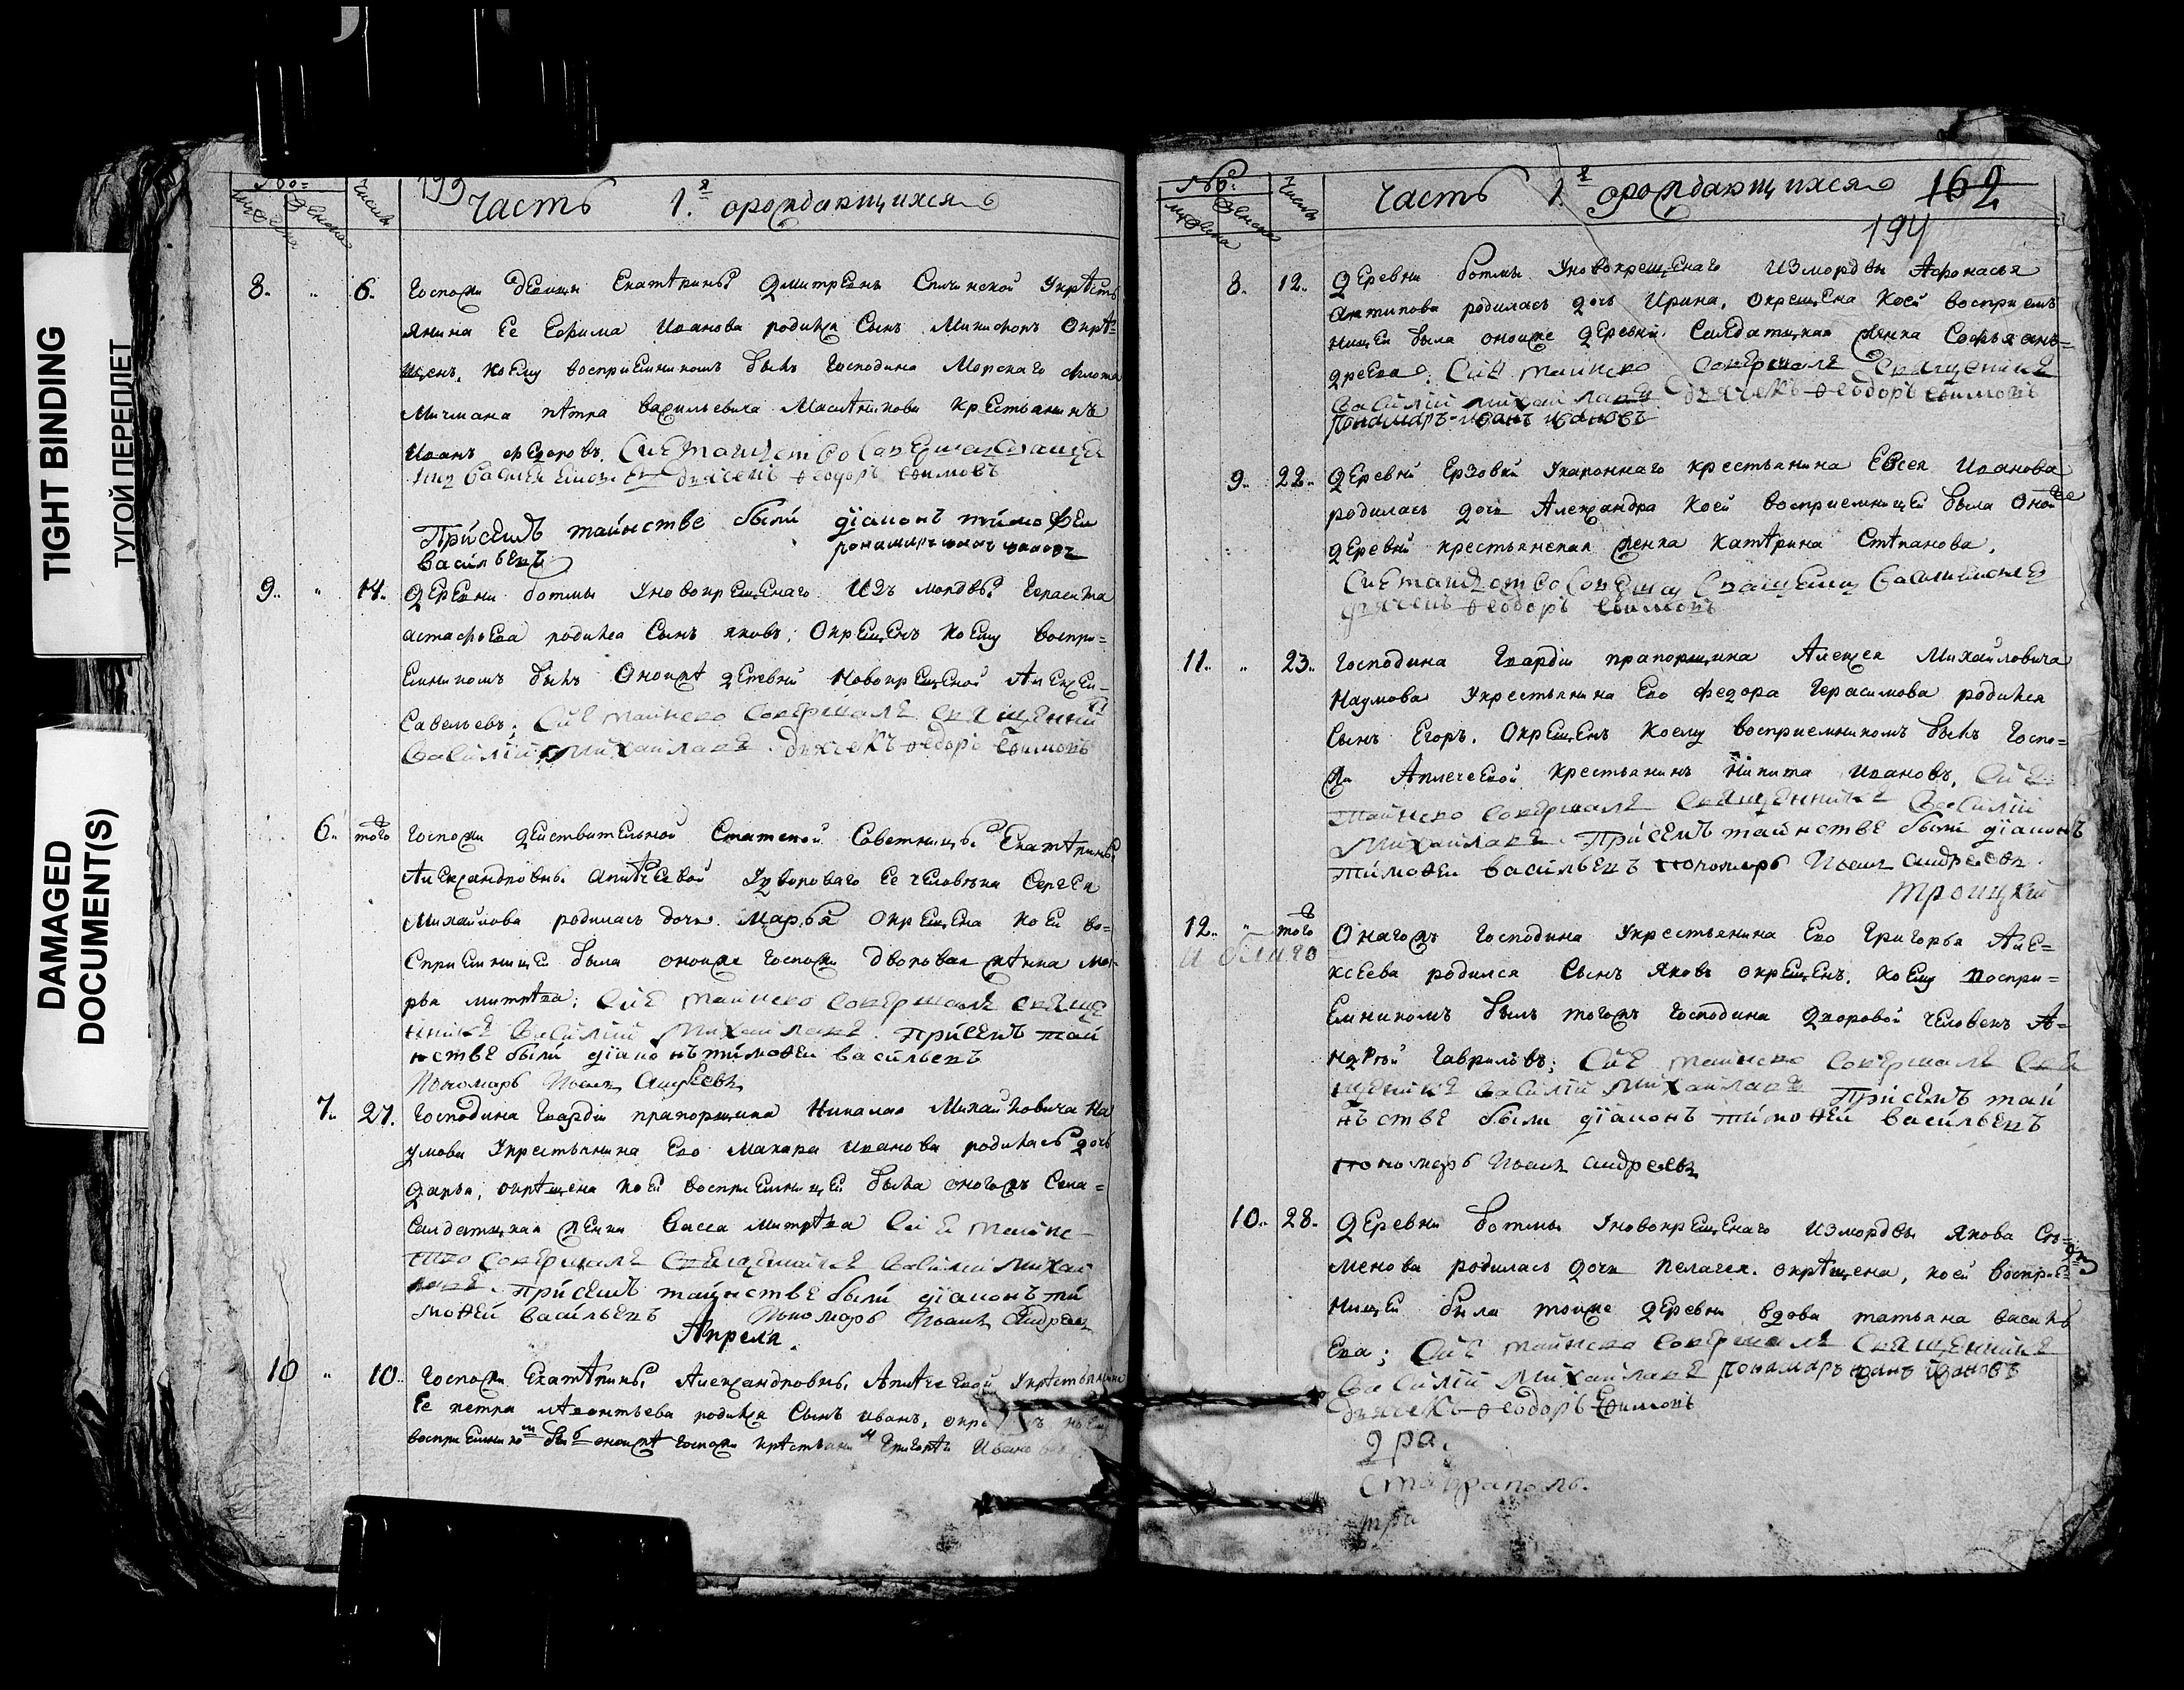 TIGHT BINDING
ТУГОЙ ПЕРЕПЛЕТ
DAMAGED
DOCUMENT(S)
193
Часть 1.я орождающихся
8. " 6. Госпожи девицы Екатѣрины Дмитревны Спичинской укрѣсть
янина Ее Ефима Иванова родился Сынъ Никифоръ Окрѣ=
щенъ, коему восприемникомъ былъ Господина Морскаго флота
Мичмана пѣтра васильевича Масленикова крестьянинъ
Иванъ федоровъ.
дьячекъ Ѳеодоръ Ефимовъ
При семъ таинстве были діаконъ тимофеи
васильевъ пономарь иванъ ивановъ
9. " 14. Деревни ботмы уновокрещенаго изъ мордвы Герасима
астафьева родился Сынъ яковъ, Окрещенъ коему воспри=
емникомъ былъ Оноижѣ деревни новокрещеной Алексеи
Савельевъ; Сие таинство совершалъ священникъ
Василій Михайловъ дьячекъ Ѳеодоръ Ефимовъ
6. того Госпожи действительной Статской Советницы Екатѣрины
Александровны апичѣевой удвороваго Ее человека Сергея
Михайлова родилась дочь Марья окрещена коеи во=
сприемницеи была оноиже госпожи дворовая жѣнка ма=
рья митрѣва; Сие таинство совершалъ свяще
нникъ Василій Михайловъ При семъ таи
нстве были діаконъ тимоѳеи васильевъ
Пономарь Иванъ Андреевъ
7. 27. Господина Гвардіи прапорщика Николая Михайловича на
умова укрестьянина Ево Макара иванова родилась дочь
дарья, окрѣщена коеи восприемницеи была оногожъ Села=
Салдатцкая женка Васса митрѣва Сие таинс
тво совершалъ священникъ Василій Михай
ловъ. При семъ таинстве были діаконъ ти
моѳеи васильевъ Пономарь Иванъ Андреевъ
Апреля.
10 " 10. Госпожи Екатѣрины Александровны Апичѣевой укрѣстьянина
Ее петра лѣонтьева родился Сынъ иванъ, окрещенъ коему
восприемникомъ былъ оноижѣ госпожи крѣстьянинъ Григорѣи Ивановъ
Часть 1.я орождающихся 162
194
8. 12. Деревни ботмы уновокрещенаго измордвы Афонасья
антипова родилась дочь Ирина, окрещена коеи восприем
ницеи была оноиже деревни Салдатцкая женка Софья анъ=
дреева; Сие таинство совершалъ Священникъ
Василій Михайловъ дьячекъ Ѳеодоръ Ефимовъ
Пономарь иванъ ивановъ
9. 22. Деревни Ерзовки укаконнаго крестьянина Евсея Иванова
родилась дочь Александра коеи восприемницеи была Онойже
деревни крестьянская женка катѣрина Стѣпанова.
дьячекъ Ѳеодоръ Ефимовъ
11. " 23. Господина Гвардіи прапорщика Алексея Михайловича
Наумова укрестьянина Ево федора Герасимова родился
Сынъ Егоръ. Окрещенъ коему восприемникомъ былъ Госпо=
жи Апичеевой крестьянинъ никита ивановъ, Сие
таинство совершалъ священникъ Василій
Михайловъ. При семъ таинстве были діаконъ
тимоѳеи васильевъ пономарь Иванъ Андреевъ
троицкій
12. " того Онагожъ Господина укрестьянина Ево Григорья Але=
ксеева родился Сынъ Яковъ окрещенъ. коему воспри=
емникомъ былъ тогожъ господина дворовой человекъ А=
ндреи Гавриловъ; Сие таинство совершалъ свя
щеникъ Василій Михайловъ При семъ таи
нъстве были діаконъ тимоѳеи васильевъ
пономарь Иванъ Андреевъ
10. 28. Деревни ботмы уновокрещенаго измордвы Якова Сѣ=
менова родилась дочь Пелагея. окрѣщена, коеи восприем
ницеи была тоиже деревни вдова татьяна василь
Ева; Сие таинство совершалъ священникъ
Василій Михайловъ пономарь иванъ ивановъ
дьячекъ Ѳеодоръ Ефимовъ